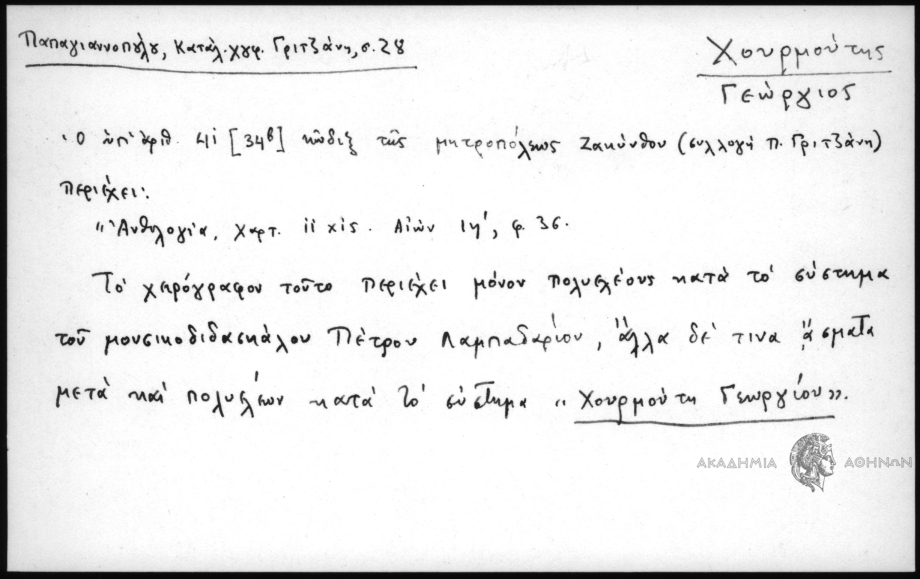 Παπαγιαννοπούλου, Κατάλ. χγφ. Γριτζάνη, σ. 28
Χουρμούτης
Γεώργιος
Ὁ ὑπ' ἀριθ. 41 [34β] κῶδιξ τῆς μητροπόλεως Ζακύνθου (συλλογή Π. Γριτζάνη)
περιέχει:
"Ἀνθολογία, χαρτ. 11 χ 15. Αἰών ΙΗ', φ. 36.
Τό χειρόγραφον τοῦτο περιέχει μόνον πολυελέους κατά τό σύστημα
τοῦ μουσικοδιδασκάλου Πέτρου Λαμπαδαρίου, ἄλλα δέ τινα ᾄσματα
μετά καί πολυελέων κατά τό σύστημα "Χουρμούτη Γεωργίου".
ΑΚΑΔΗΜΙΑ ΑΘΗΝΩΝ